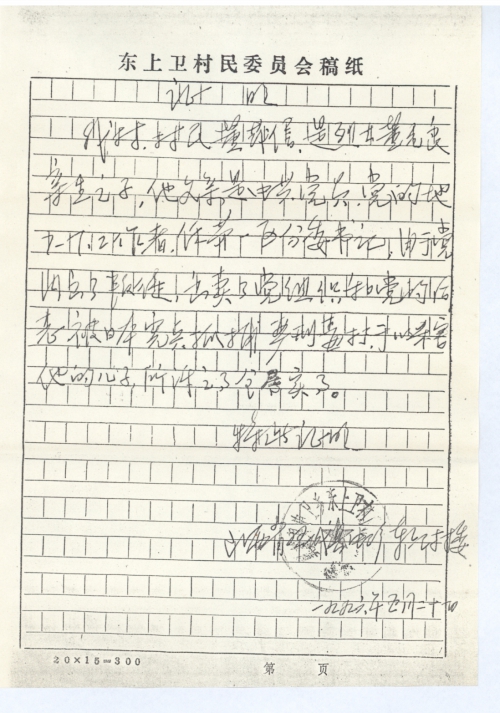 东上卫村民委员会稿纸
证明
我村村民董雄信,是烈士董元良
亲生之子,他父亲是中共党员,党的地
下工作者,任第一区分委书记,由于党
内出了叛徒,出卖了党组织和党的
被日本宪兵抓捕,严刑毒打,予以杀害
他的儿子所诉之事全属实了。
特此证明
山西省 东上卫村委
一九九六年五月二十一日
20×15=300
第 页